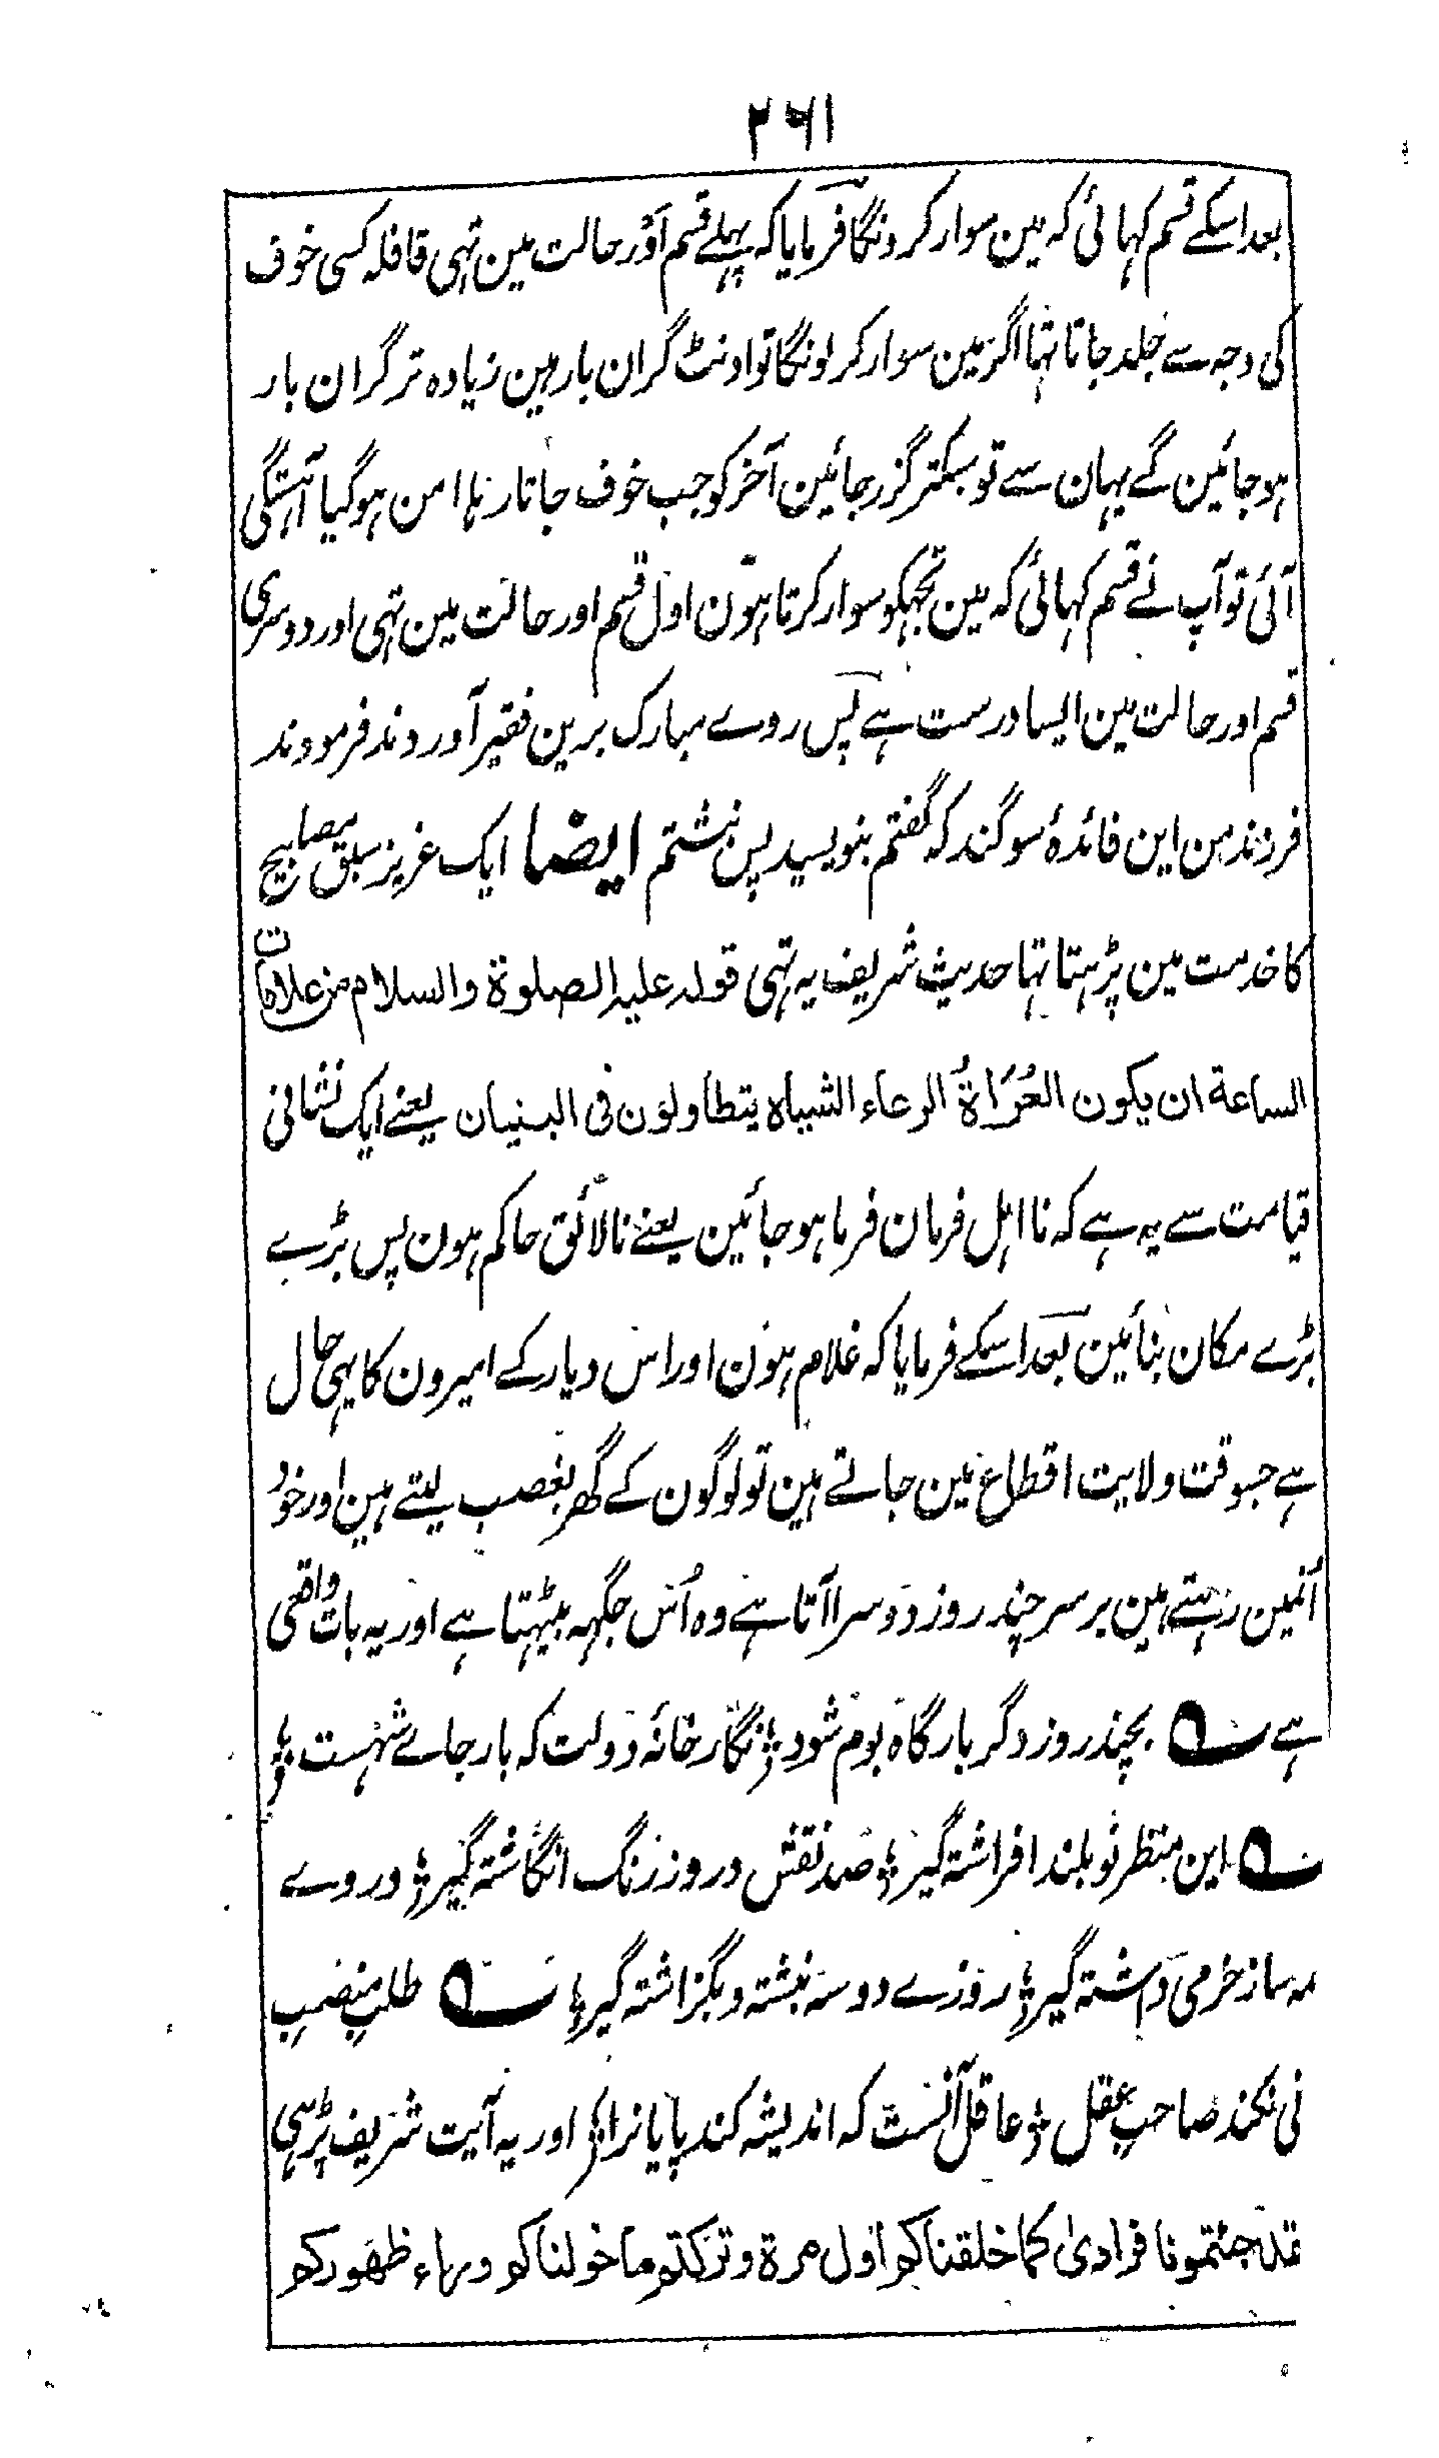 ۲۶۱
بعد اسکے قسم کہائی کہ مین سوار کرونگا فرمایا کہ پہلے قسم اَوْر حالت مین تہی قافلہ کسی خوف
کی وجہ سے جلد جاتا تہا اگر مین سوار کر لونگا تو اونٹ گران بار ہین زیادہ تر گران بار
ہو جائین گے یہان سے تو سبکتر گزر جائین آخر کو جب خوف جاتا رہا امن ہو گیا آہستگی
آئی تو آپ نے قسم کہائی کہ مین تجہکو سوار کرتا ہون اول قسم اور حالت مین تہی اور دوسری
قسم اور حالت مین ایسا درست ہے پس روے مبارک برین فقیر آوردند فرمودند
فرزند من این فائدۂ سوگند کہ گفتم بنویسید پس نبشتم ایضا ایک عزیز سبق مصابیح
کا خدمت مین پڑہتا تہا حدیث شریف یہ تہی قولہ علیہ الصلوۃ والسلام من علامات
الساعۃ ان یکون العُرَاۃُ الرعاء الشیاہ یتطاولون فی البنیان یعنے ایک نشانی
قیامت سے یہ ہے کہ نا اہل فرمان فرما ہو جائین یعنے نالائق حاکم ہون پس بڑے
بڑے مکان بنائین بعد اسکے فرمایا کہ غلام ہون اور اس دیار کے امیرون کا یہی حال
ہے جسوقت ولایت اقطاع مین جاتے ہین تو لوگون کے گھر بغصب لیتے ہین اور خود
اُنمین رہتے ہین برسر چند روز دوسرا آتا ہے وہ اُس جگہہ بیٹہتا ہے اور یہ بات واقعی
ہے بچند روز دگر بارگاہ بوم شود نگار خانۂ دولت کہ بار جاے شہست
این منظر نو بلند افراشتہ گیر صد نقش درو ز رنگ انگاشتہ گیر در وے
ہمہ ساز خرمی داشتہ گیر روزے دو سہ بنشستہ و بگزاشتہ گیر طلب منصب
نی نکند صاحب عقل عاقل آنست کہ اندیشہ کند پایانرا اور یہ آیت شریف پڑہی
لقد جئتمونا فرادیٰ کما خلقناکم اول مرۃ وترکتم ما خولناکم وراء ظھورکم